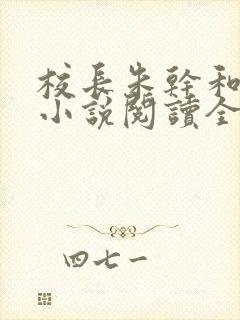 校長朱幹和
小說閱讀全
四七一